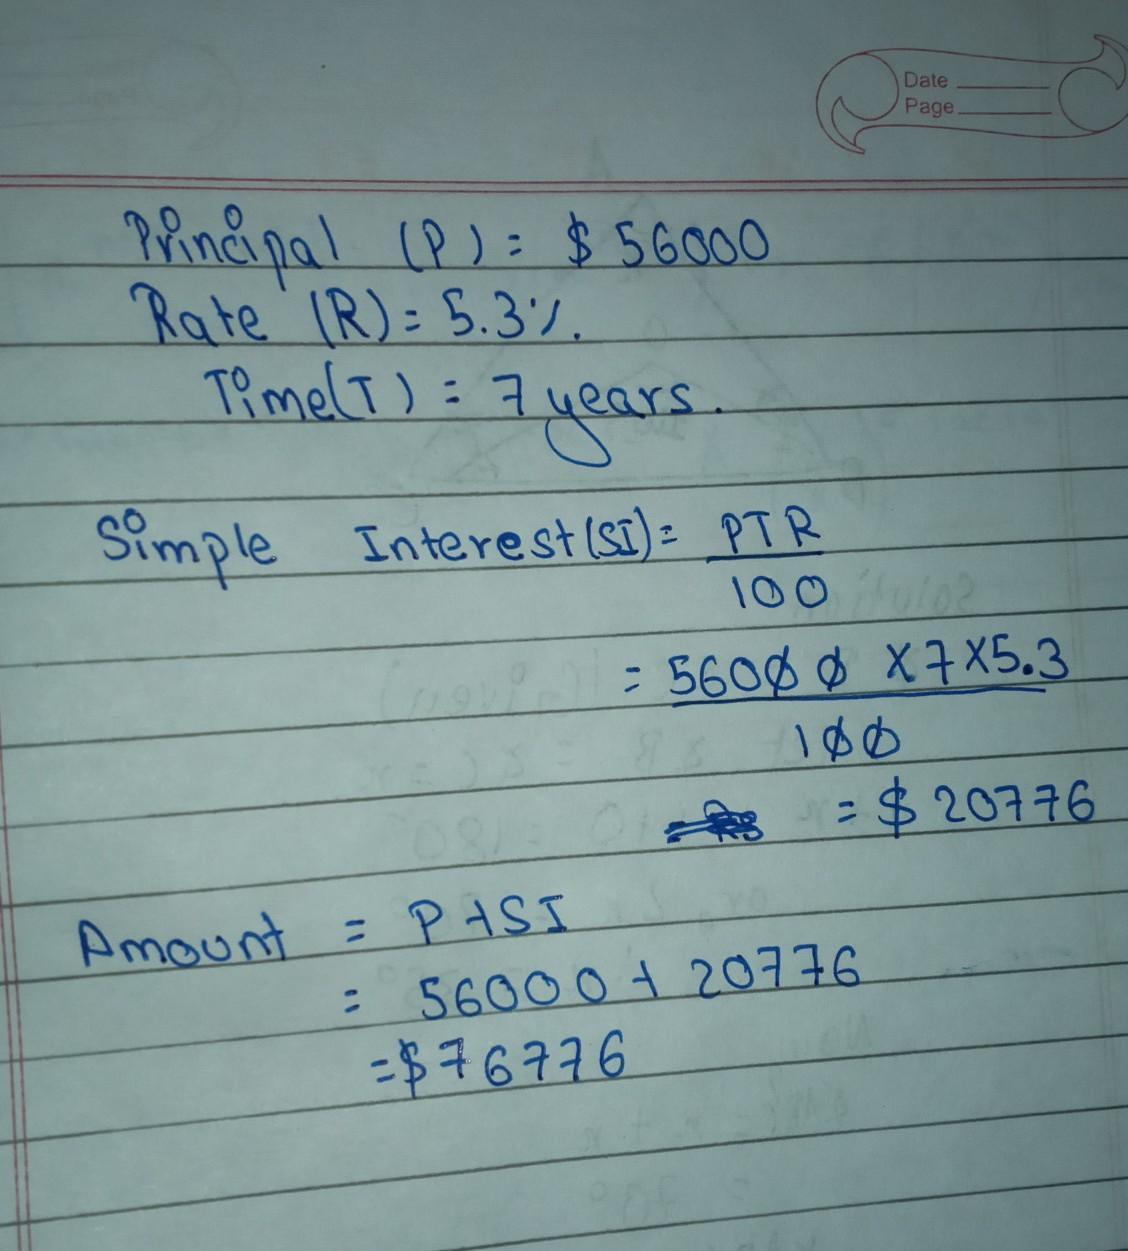 Date
Page
Principal (P) = $ 56000
Rate (R) = 5.3%.
Time(T) = 7 years.
Simple Interest(SI) = PTR
100
= 56000 x 7 x 5.3
100
= $ 20776
Amount = P + SI
= 56000 + 20776
= $76776